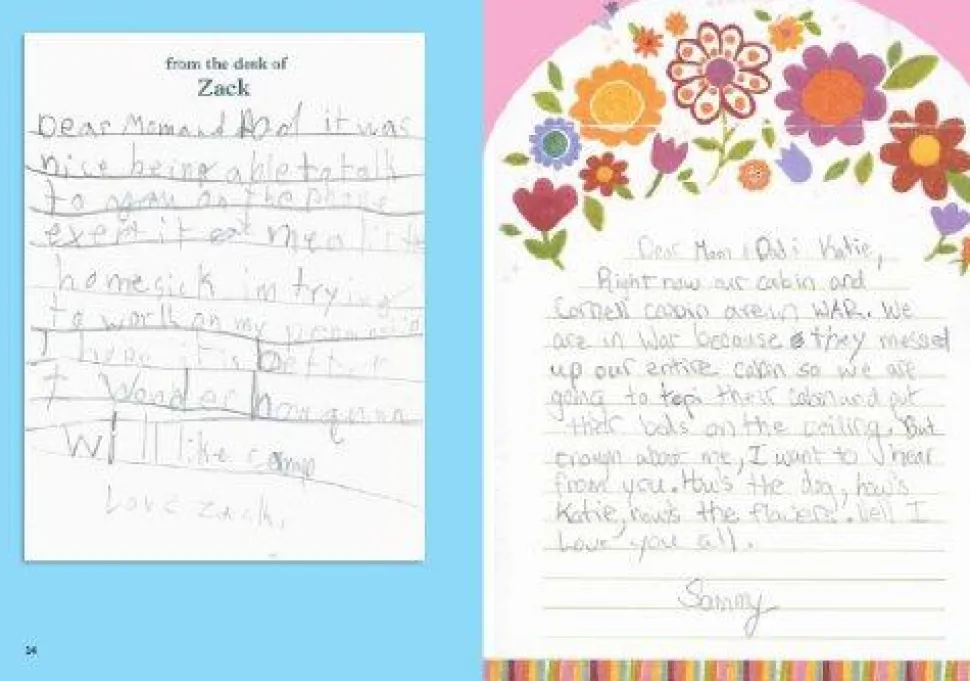 from the desk of
Zack
Dear Mom and Dad it was
nice being able to talk
to you on the phone
exept it got me a little
homesick im trying
to work on my
I hope it is better
I wonder how
Will like camp
Love Zack,
14
Dear Mom & Dad & Katie,
Right now our cabin and
Cornell cabin are in WAR. We
are in War because they messed
up our entire cabin so we are
going to their cabin and put
their beds on the ceiling. But
enough about me, I want to hear
from you. How's the dog, how's
Katie, how's the flowers. Well I
Love you all.
Sammy